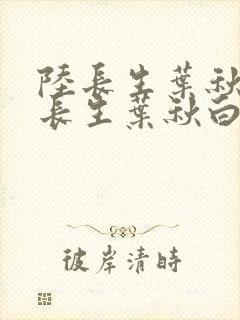 陸長生葉秋
長生葉秋白
彼岸清時